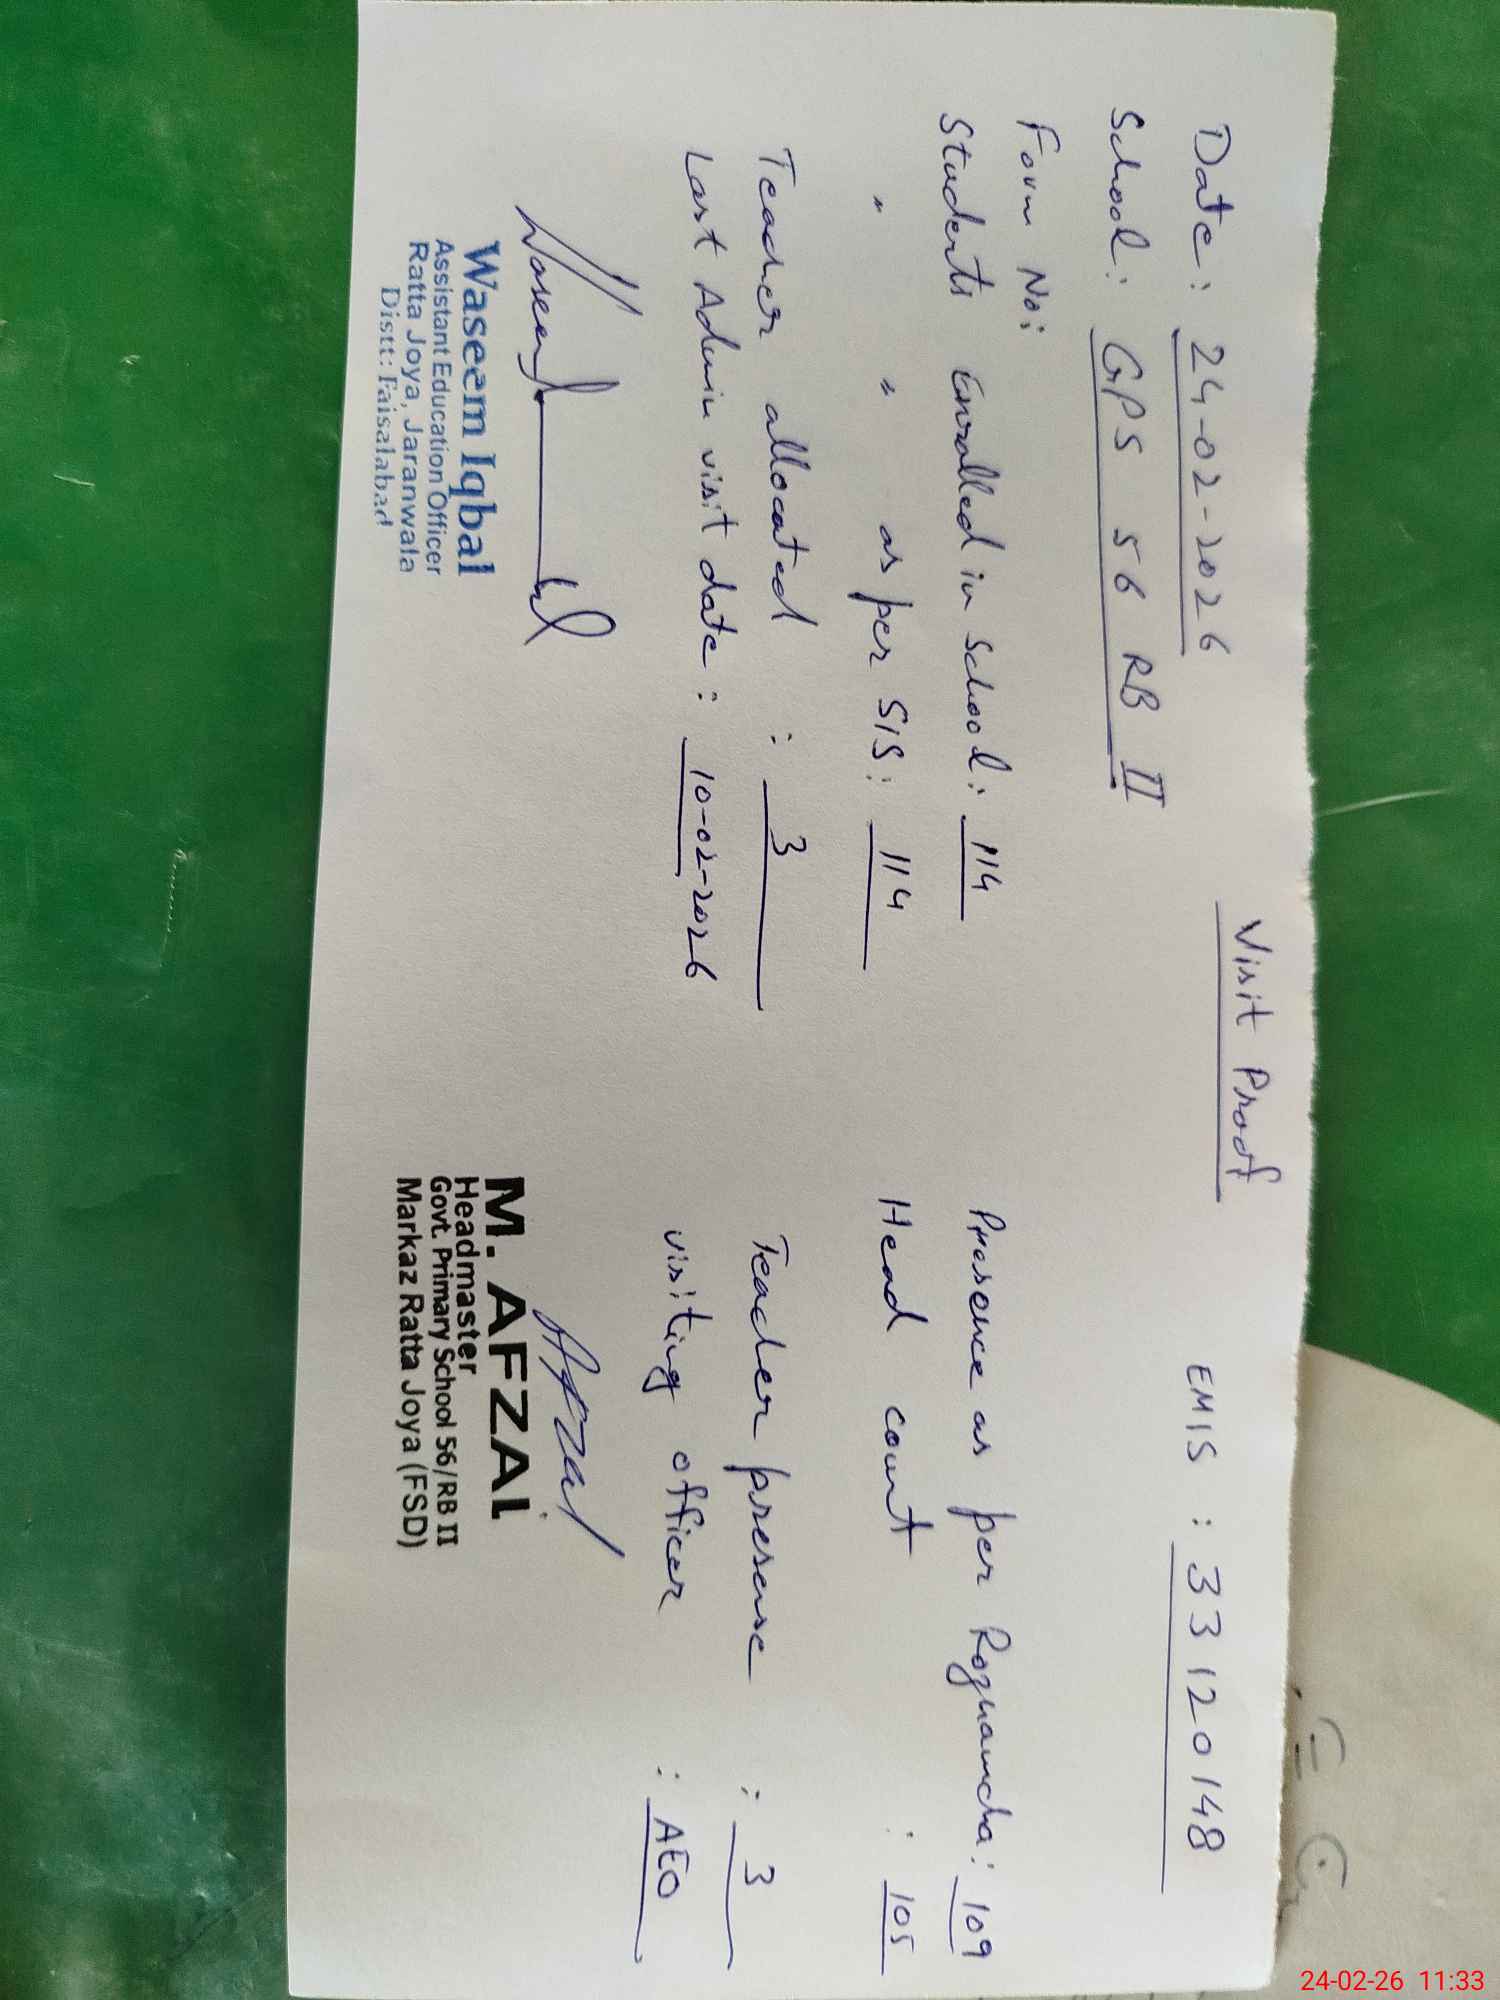 Visit Proof
Date: 24-02-2026 EMIS: 33120148
School: GPS 56 RB II
Form No:
Students Enrolled in School: 114 Presence as per Roznamcha: 109
" " as per SIS: 114 Head count : 105
Teacher allocated : 3 Teacher presense : 3
Last Admin visit date: 10-02-2026 visiting officer : AEO
Waseem Iqbal
Assistant Education Officer
Ratta Joya, Jaranwala
Distt: Faisalabad
Afzal
M. AFZAL
Headmaster
Govt. Primary School 56/RB II
Markaz Ratta Joya (FSD)
24-02-26 11:33